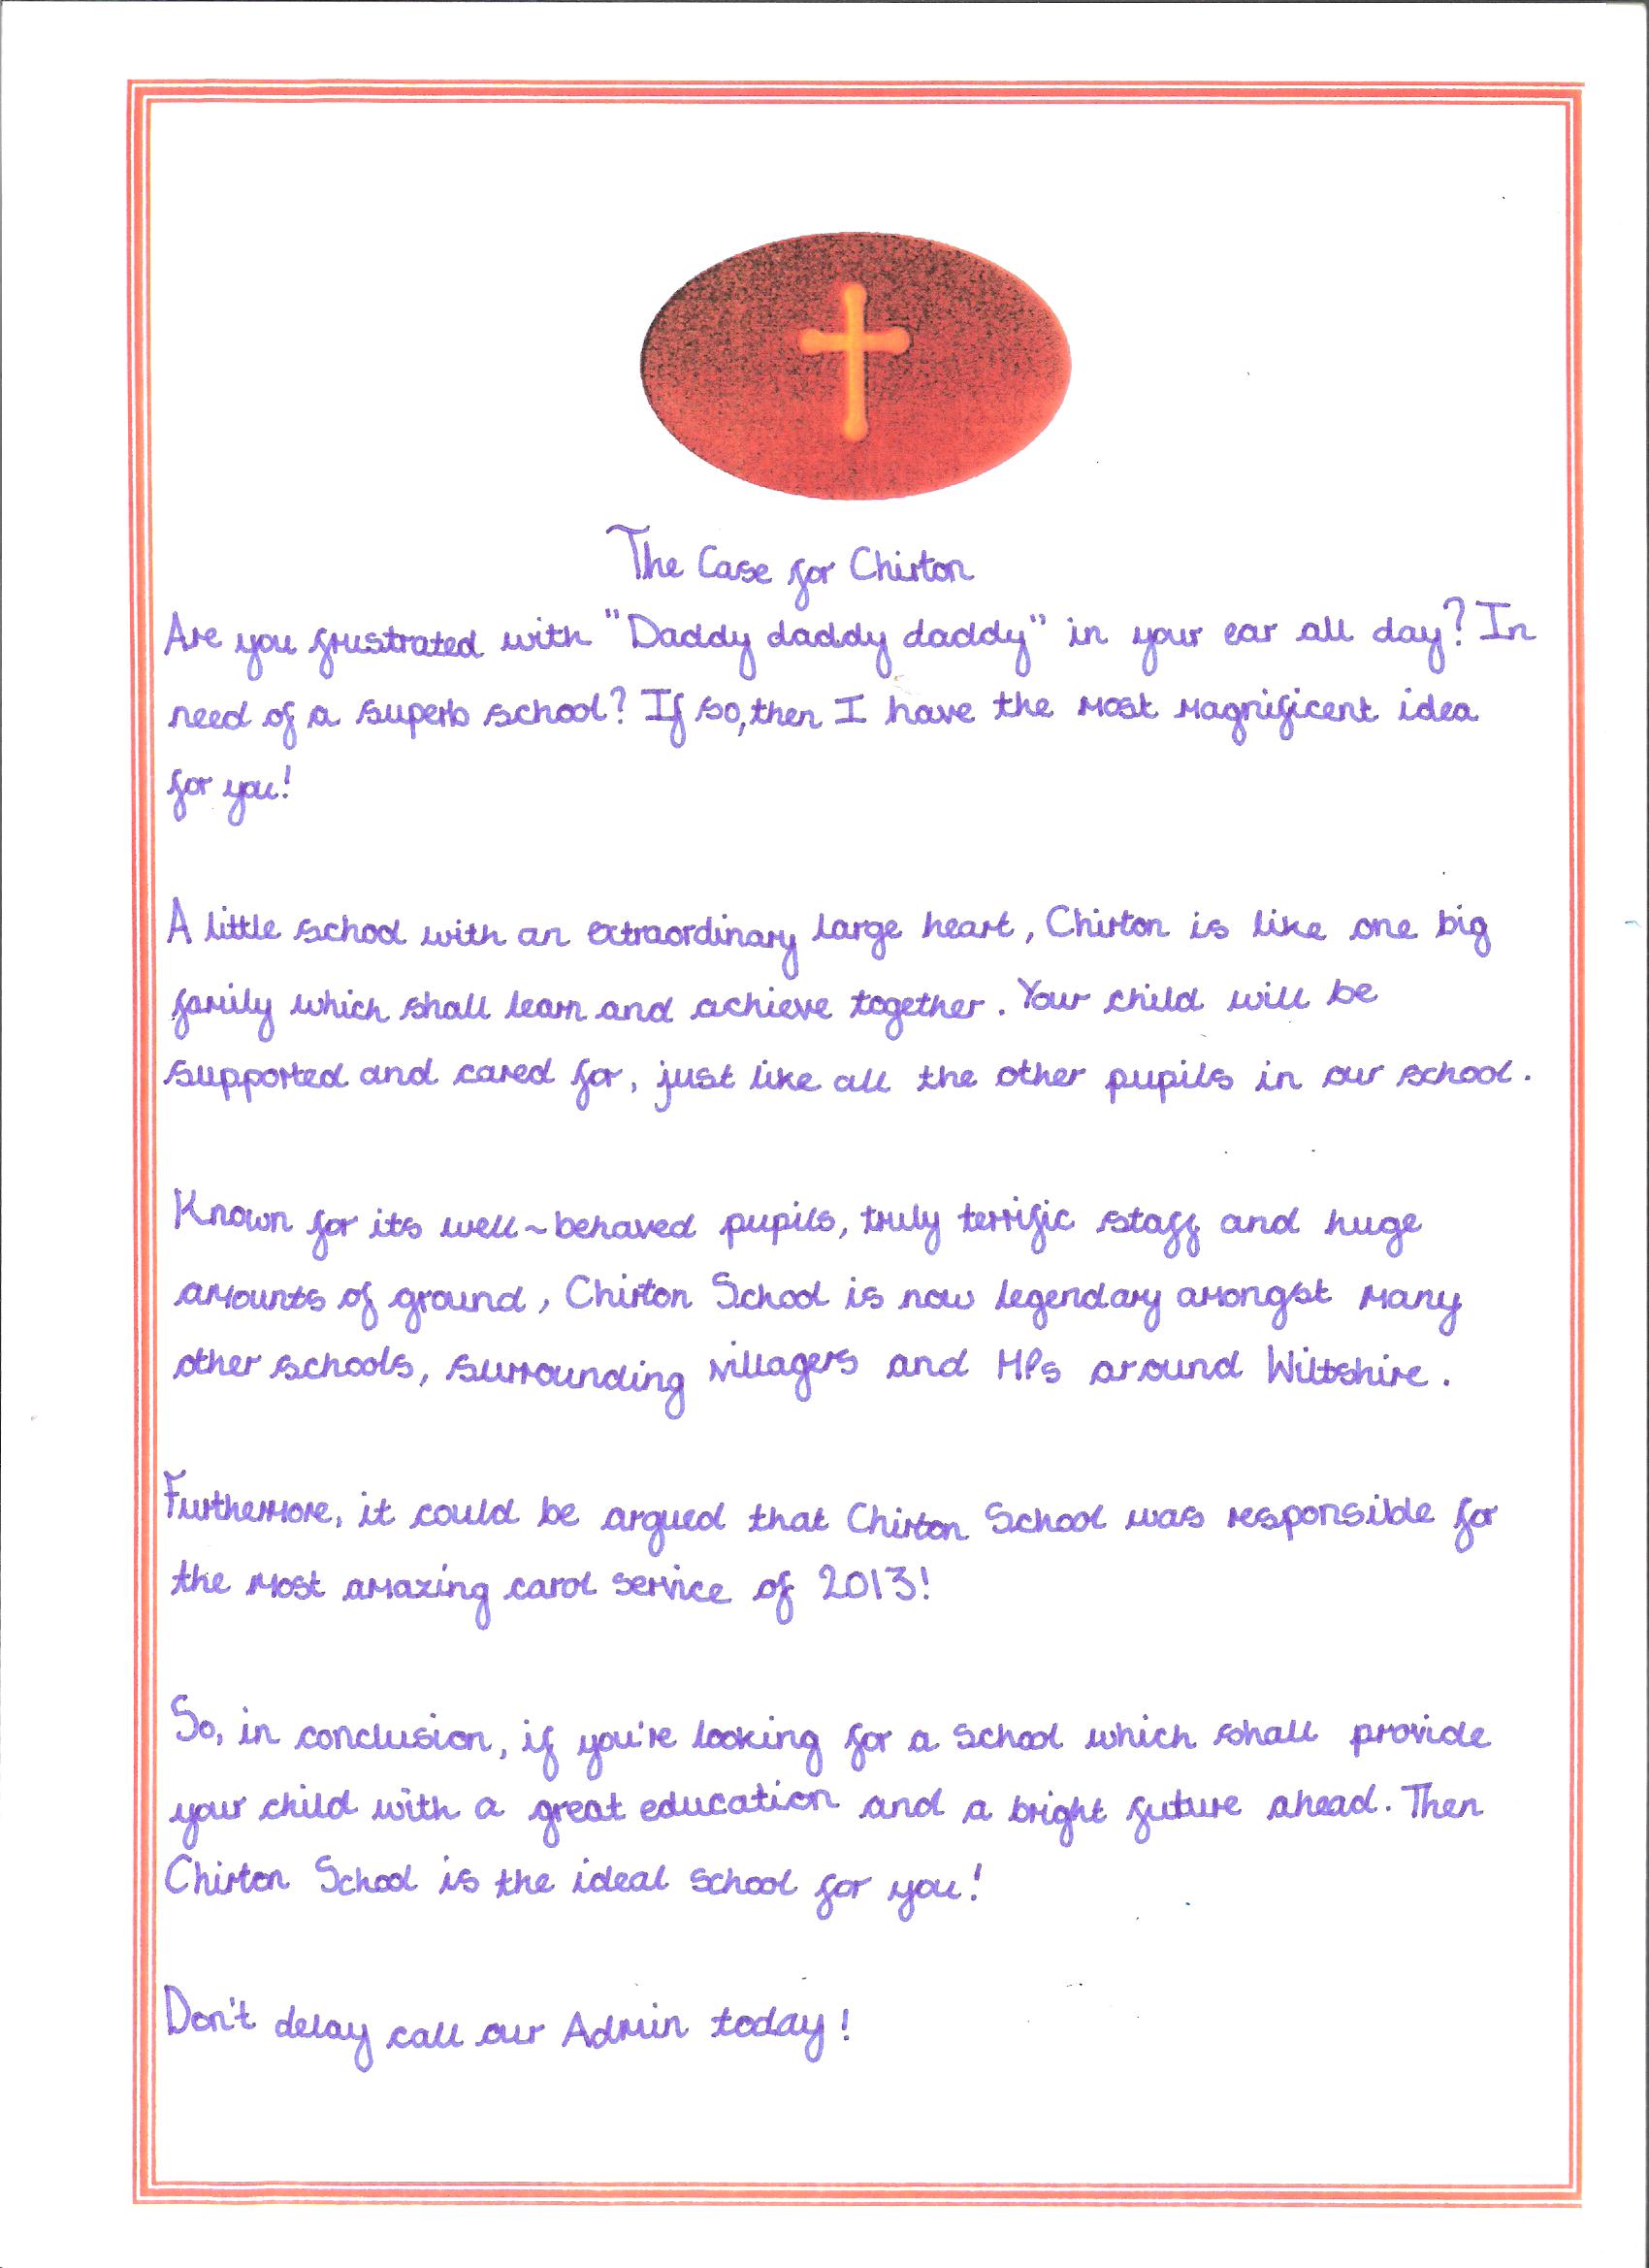 The Case for Chirton
Are you frustrated with "Daddy daddy daddy" in your ear all day? In
need of a superb school? If so, then I have the most magnificent idea
for you!
A little school with an extraordinary large heart, Chirton is like one big
family which shall learn and achieve together. Your child will be
supported and cared for, just like all the other pupils in our school.
Known for its well-behaved pupils, truly terrific staff and huge
amounts of ground, Chirton School is now legendary amongst many
other schools, surrounding villagers and MPs around Wiltshire.
Furthermore, it could be argued that Chirton School was responsible for
the most amazing carol service of 2013!
So, in conclusion, if you're looking for a school which shall provide
your child with a great education and a bright future ahead. Then
Chirton School is the ideal school for you!
Don't delay call our Admin today!